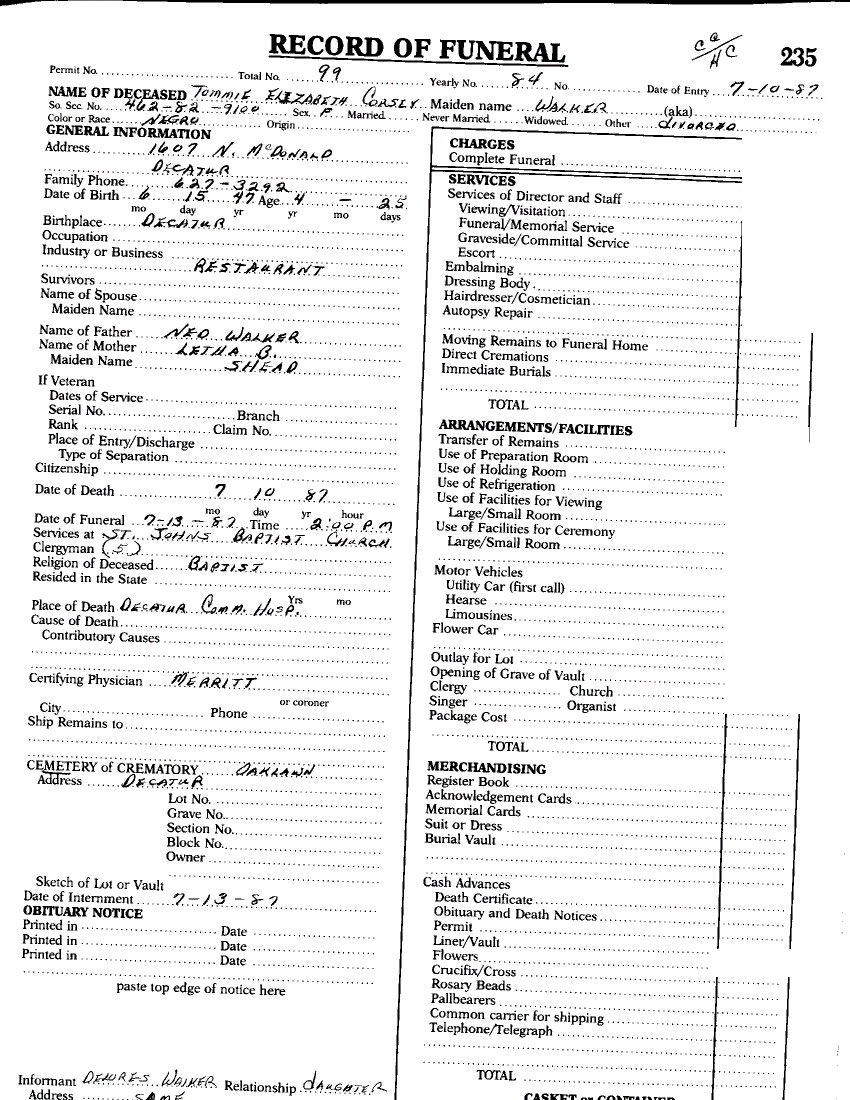 RECORD OF FUNERAL
CQ/HC
235
Permit No. Total No. 99 Yearly No. 84 No. Date of Entry 7-10-87
NAME OF DECEASED TOMMIE ELIZABETH CORSEY Maiden name WALKER (aka)
So. Sec. No. 462-82-9100 Sex F Married Never Married Widowed Other DIVORCED
Color or Race NEGRO Origin
GENERAL INFORMATION
Address 1607 N. McDONALD
DECATUR
Family Phone 627-3292
Date of Birth 6 15 47 Age 4 - 25
mo day yr yr mo days
Birthplace DECATUR
Occupation
Industry or Business
RESTAURANT
Survivors
Name of Spouse
Maiden Name
Name of Father NED WALKER
Name of Mother LETHA B.
Maiden Name SHEAD
If Veteran
Dates of Service
Serial No. Branch
Rank Claim No.
Place of Entry/Discharge
Type of Separation
Citizenship
Date of Death 7 10 87
mo day yr hour
Date of Funeral 7-13-87 Time 2:00 P.M
Services at ST. JOHNS BAPTIST CHURCH
Clergyman (5)
Religion of Deceased BAPTIST
Resided in the State
Yrs mo
Place of Death DECATUR COMM. HOSP.
Cause of Death
Contributory Causes
Certifying Physician MERRITT
or coroner
City Phone
Ship Remains to
CEMETERY of CREMATORY OAKLAWN
Address DECATUR
Lot No.
Grave No.
Section No.
Block No.
Owner
Sketch of Lot or Vault
Date of Internment 7-13-87
OBITUARY NOTICE
Printed in Date
Printed in Date
Printed in Date
paste top edge of notice here
Informant DELORES WALKER Relationship DAUGHTER
Address SAME
CHARGES
Complete Funeral
SERVICES
Services of Director and Staff
Viewing/Visitation
Funeral/Memorial Service
Graveside/Committal Service
Escort
Embalming
Dressing Body
Hairdresser/Cosmetician
Autopsy Repair
Moving Remains to Funeral Home
Direct Cremations
Immediate Burials
TOTAL
ARRANGEMENTS/FACILITIES
Transfer of Remains
Use of Preparation Room
Use of Holding Room
Use of Refrigeration
Use of Facilities for Viewing
Large/Small Room
Use of Facilities for Ceremony
Large/Small Room
Motor Vehicles
Utility Car (first call)
Hearse
Limousines
Flower Car
Outlay for Lot
Opening of Grave of Vault
Clergy Church
Singer Organist
Package Cost
TOTAL
MERCHANDISING
Register Book
Acknowledgement Cards
Memorial Cards
Suit or Dress
Burial Vault
Cash Advances
Death Certificate
Obituary and Death Notices
Permit
Liner/Vault
Flowers
Crucifix/Cross
Rosary Beads
Pallbearers
Common carrier for shipping
Telephone/Telegraph
TOTAL
CASKET or CONTAINER